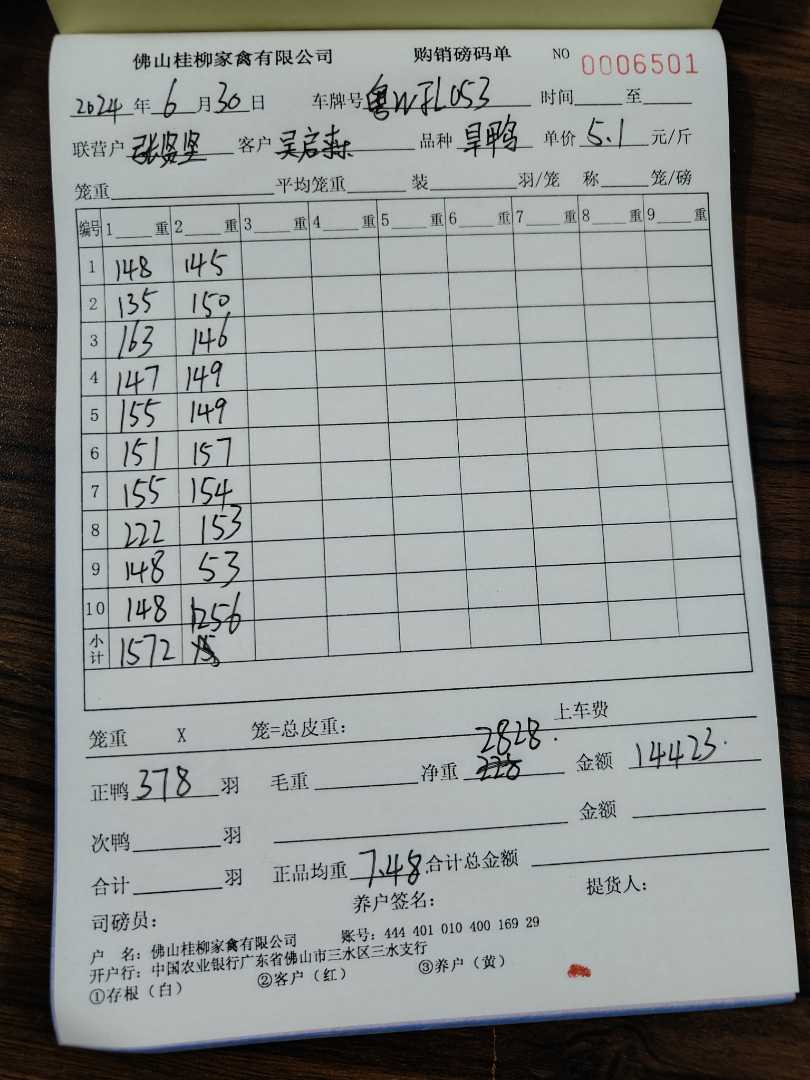 佛山桂柳家禽有限公司 购销磅码单 NO 0006501
2024年6月30日 车牌号粤WJL053 时间 至
联营户 张贤坚 客户 吴启森 品种 旱鸭 单价 5.1 元/斤
笼重 平均笼重 装 羽/笼 称 笼/磅
编号 1 重 2 重 3 重 4 重 5 重 6 重 7 重 8 重 9 重
1 148 145
2 135 150
3 163 146
4 147 149
5 155 149
6 151 157
7 155 154
8 222 153
9 148 53
10 148 1256
小计 1572
笼重 X 笼=总皮重: 上车费
正鸭 378 羽 毛重 净重 2828. 金额 14423.
次鸭 羽 金额
合计 羽 正品均重 7.48 合计总金额
司磅员: 养户签名: 提货人:
户 名:佛山桂柳家禽有限公司 账号:444 401 010 400 169 29
开户行:中国农业银行广东省佛山市三水区三水支行
①存根(白) ②客户(红) ③养户(黄)